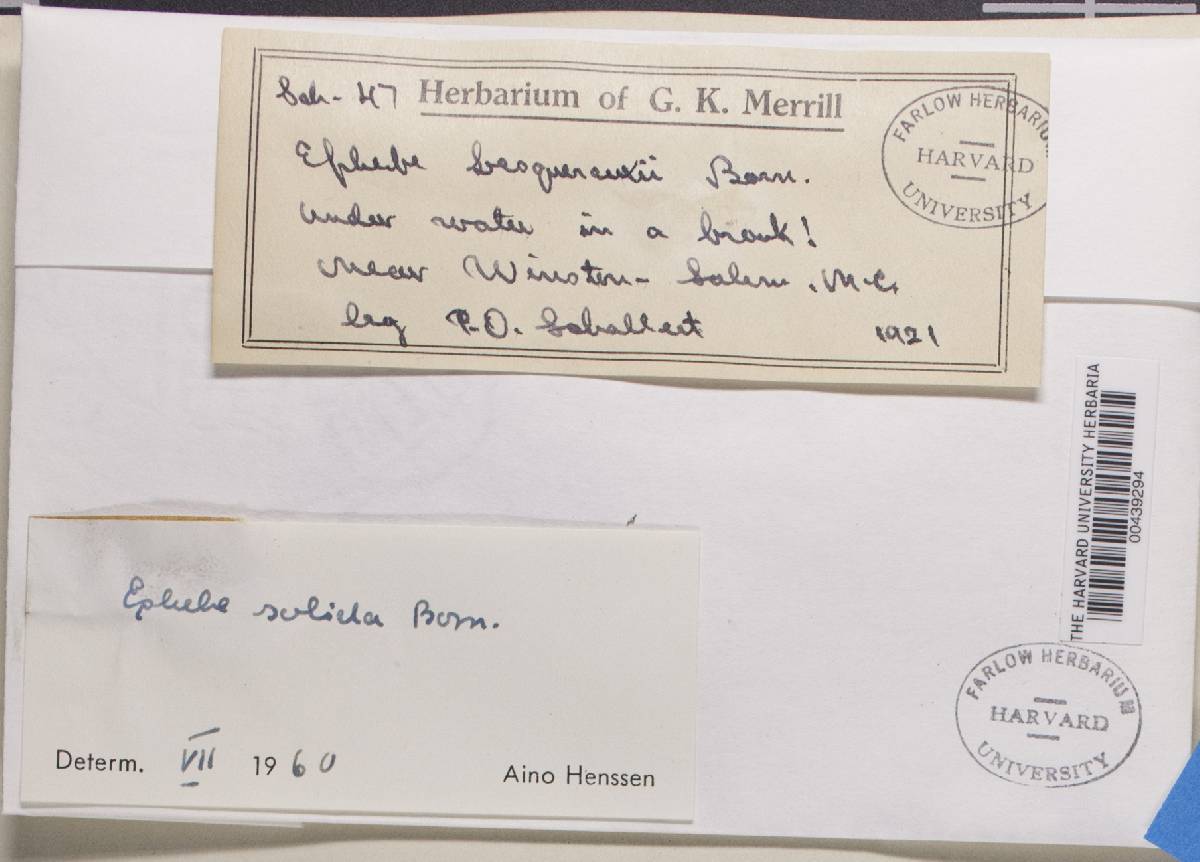 Sch-47 Herbarium of G. K. Merrill
Ephebe Lesquereuxii Born.
under water in a brook!
near Winston-Salem, N.C.
leg P.O. Schallert 1921
FARLOW HERBARIUM
HARVARD
UNIVERSITY
THE HARVARD UNIVERSITY HERBARIA
00439294
Ephebe solida Born.
Determ. VII 1960 Aino Henssen
FARLOW HERBARIUM
HARVARD
UNIVERSITY